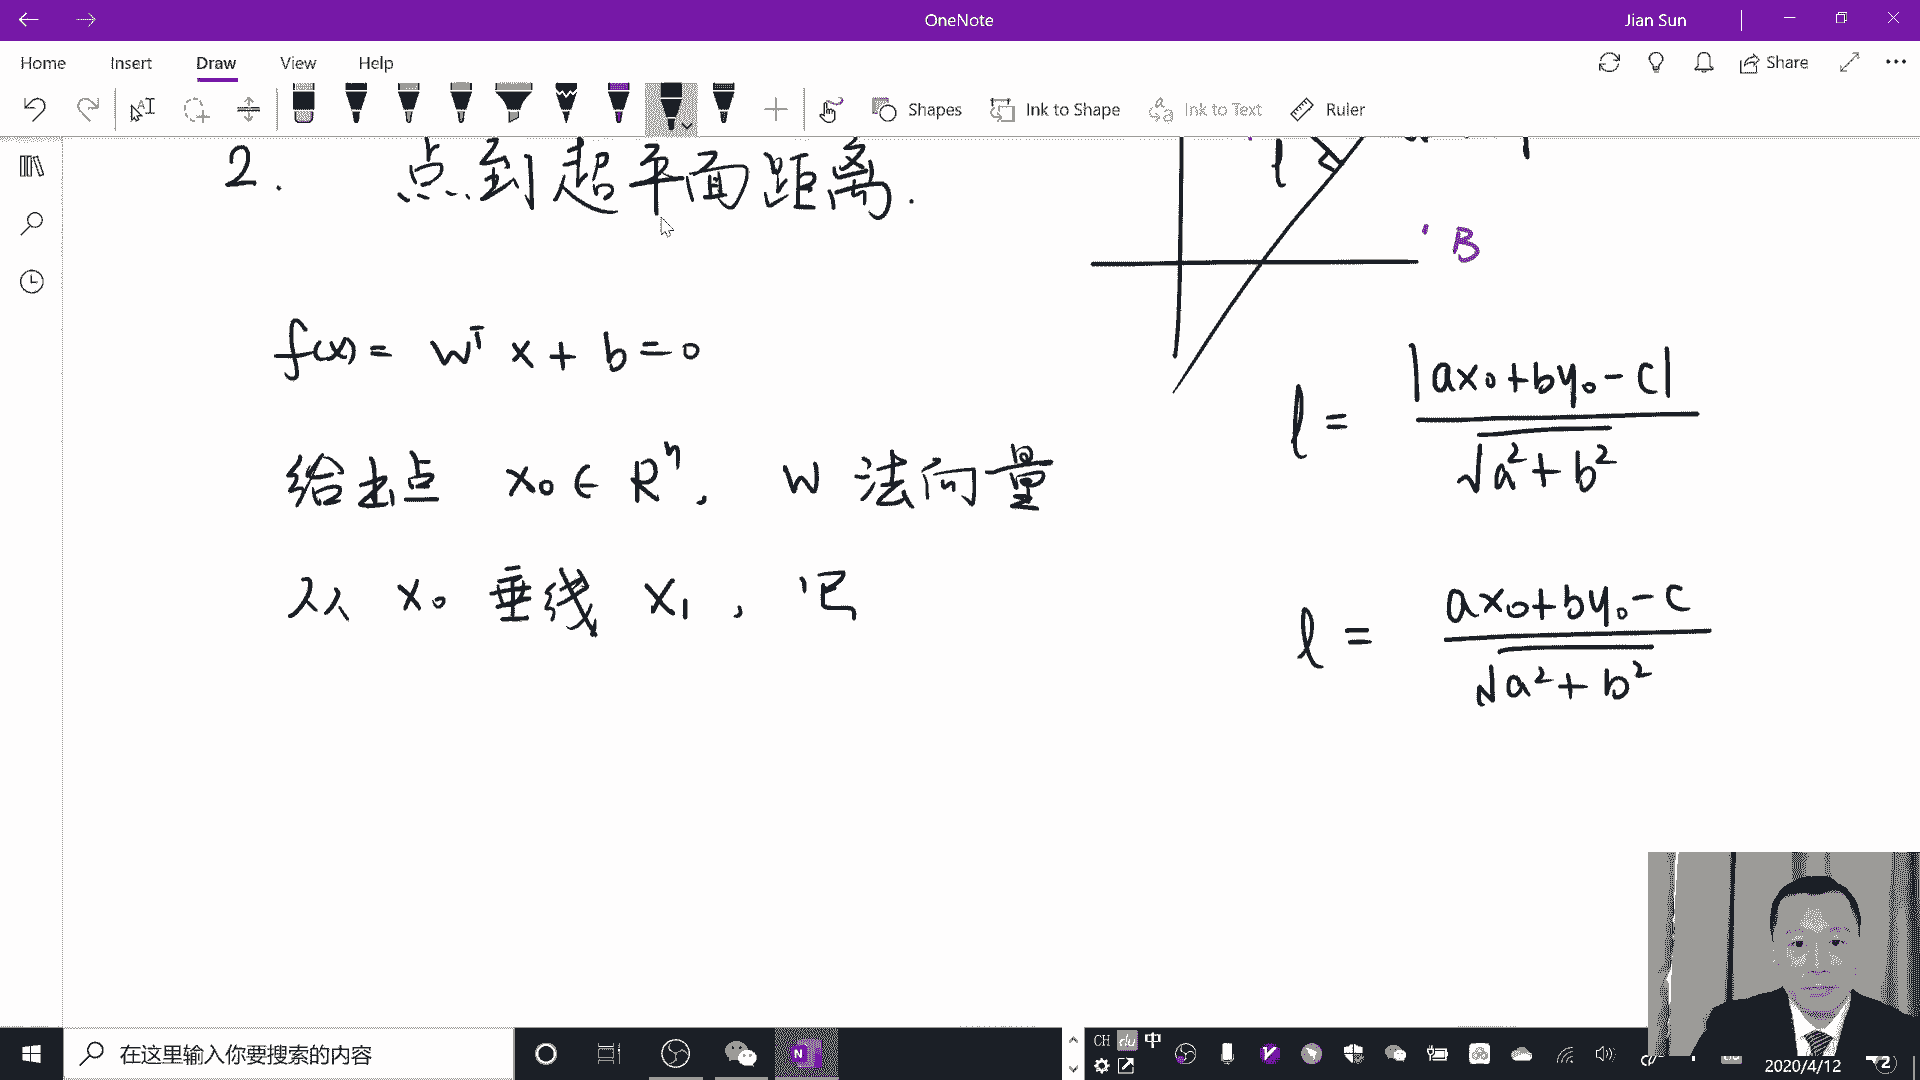 OneNote
Jian Sun
Home Insert Draw View Help
Share
Shapes
Ink to Shape
Ink to Text
Ruler
2. 点到超平面距离.
l
B
f(x) = wᵀx + b = 0
给出点 x₀ ∈ Rⁿ, w 法向量
从 x₀ 垂线 x₁, 记
l = |ax₀+by₀-c| / √(a²+b²)
l = (ax₀+by₀-c) / √(a²+b²)
在这里输入你要搜索的内容
CH 中
2020/4/12
2